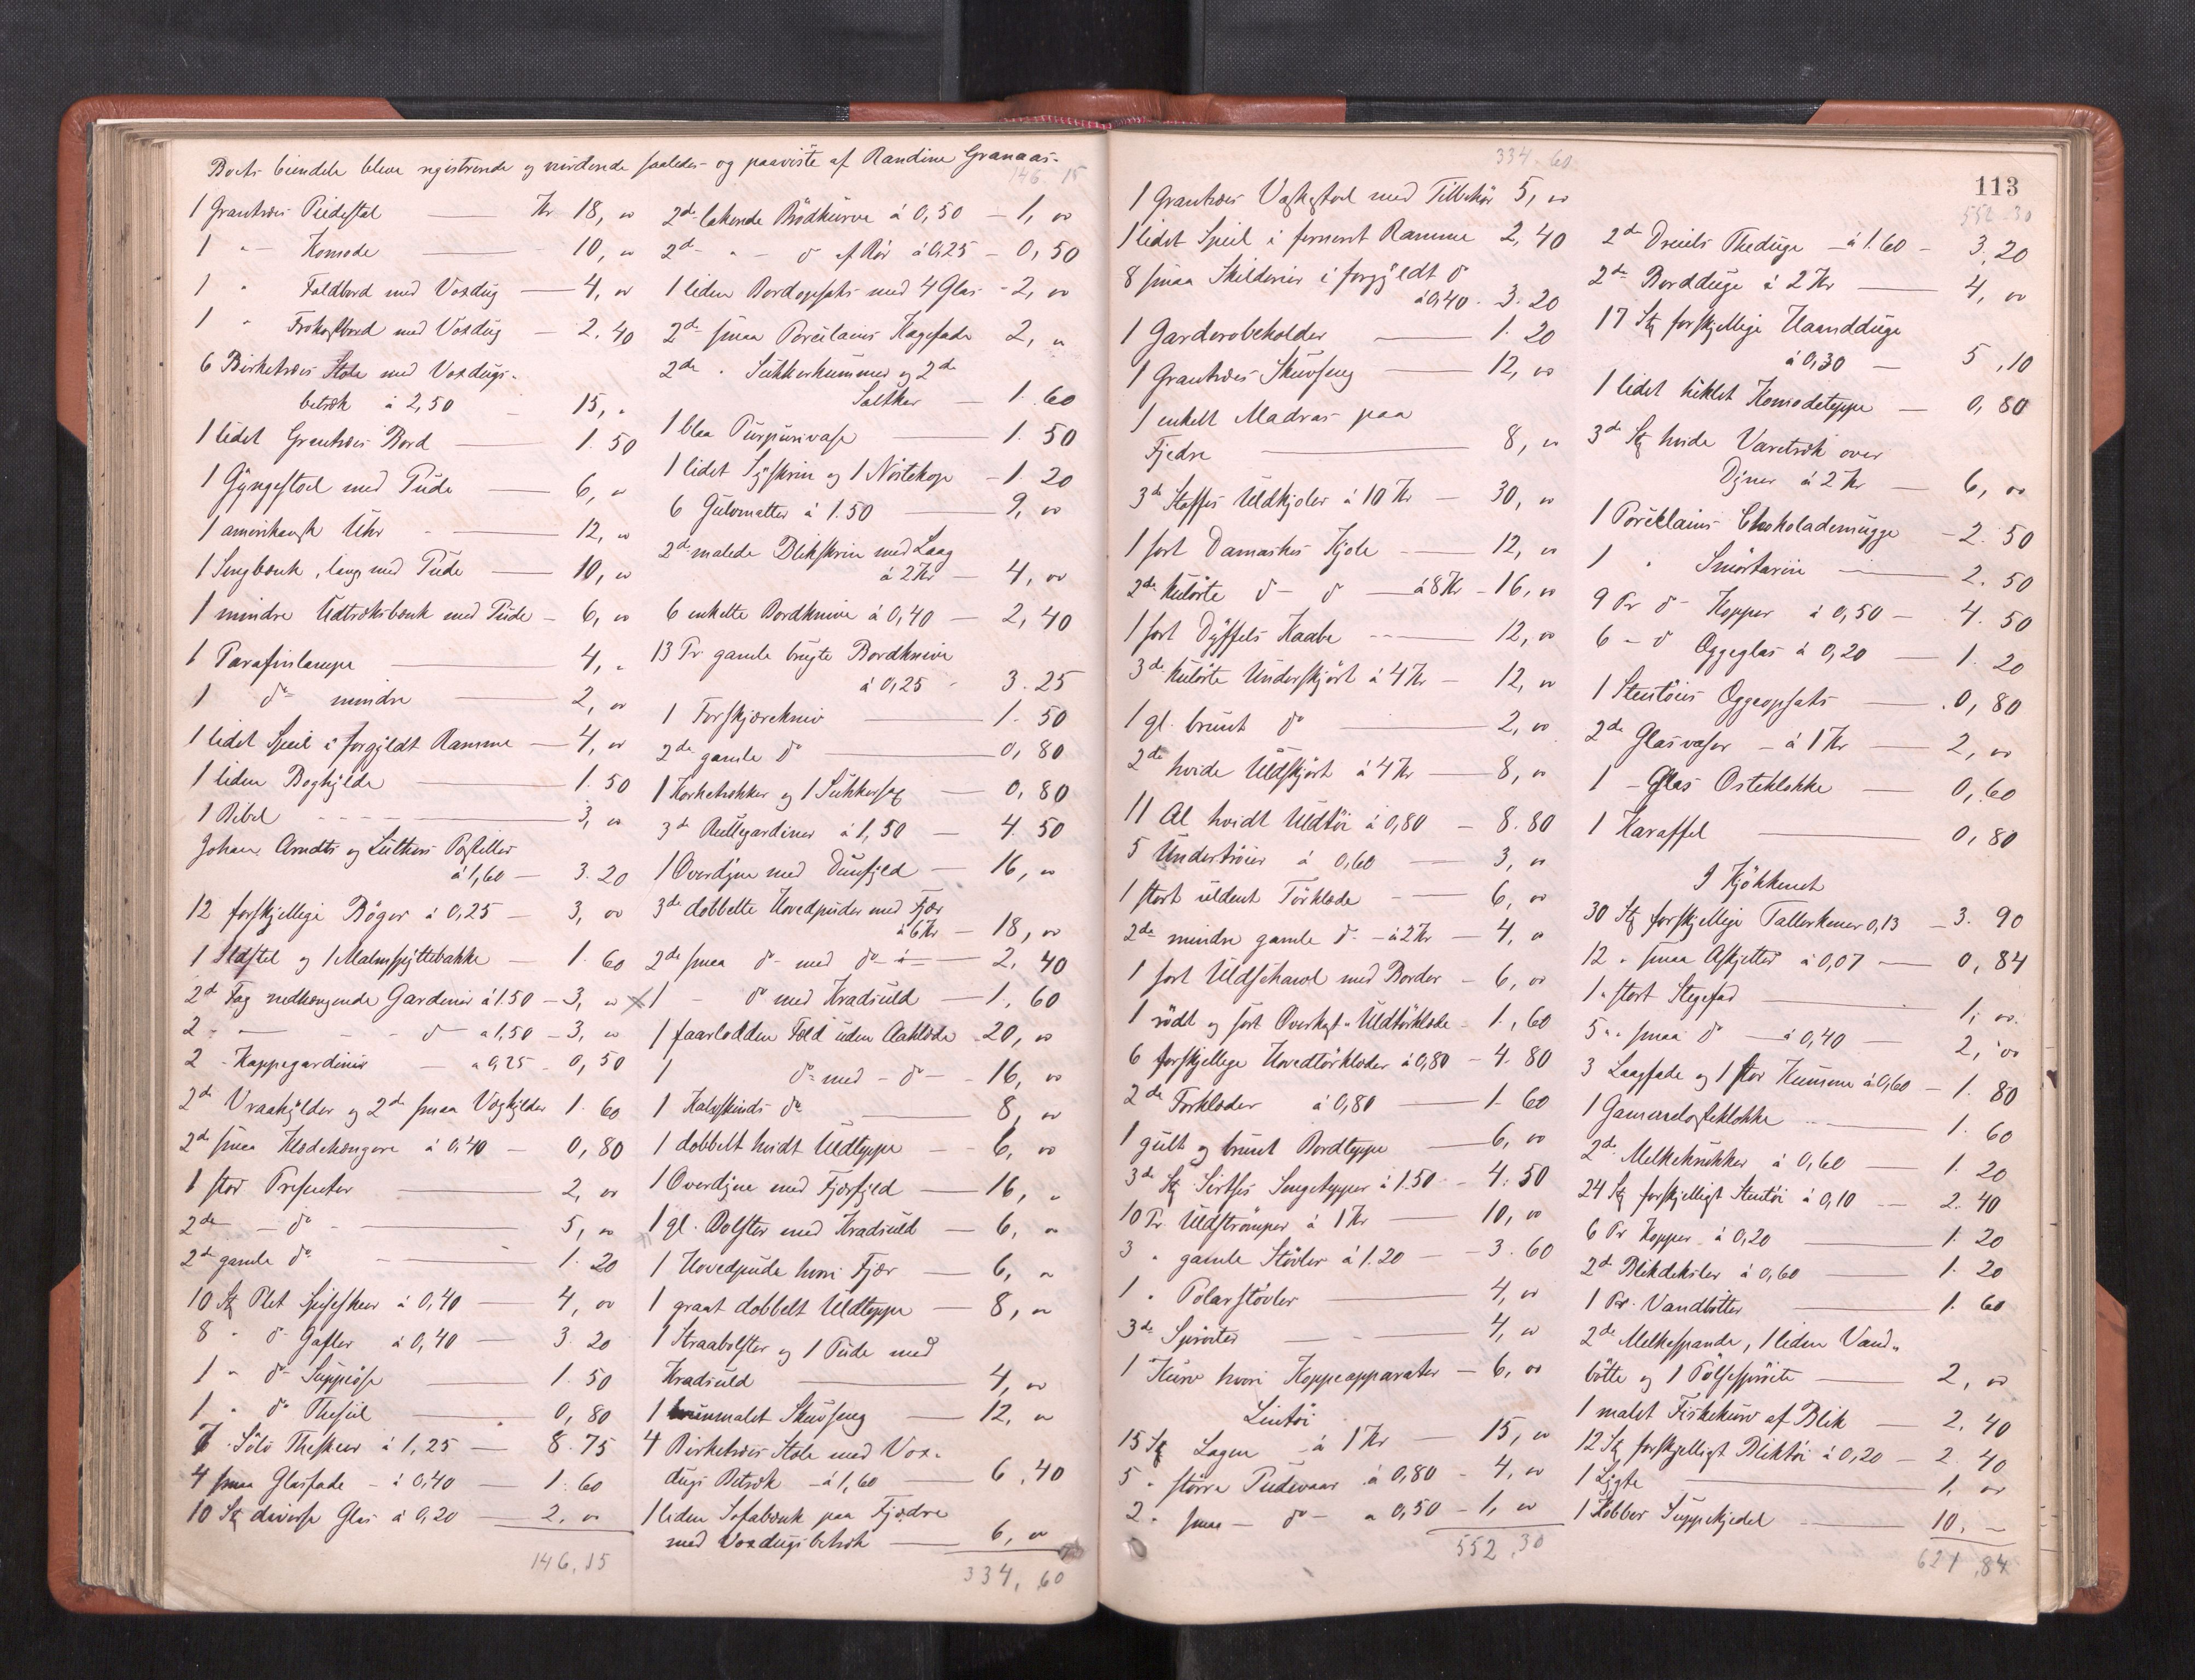 Boets Eiendele bleve registrerede og vurderede saaledes og paaviste af Randine Granaas.
1 Grantræs Piedestal — Kr 18, 00
1 " Komode — 10, 00
1 " Foldbord med Voxdug — 4, 00
1 " Frokostbord med Voxdug — 2. 40
6 Birketræs Stole med Voxdugs-
betræk á 2,50 — 15, "
1 lidet Grantræs Bord — 1. 50
1 Gyngestol med Pude — 6, 00
1 amerikansk Uhr — 12, 00
1 Sengbænk, lang med Pude — 10, 00
1 mindre Udtræksbænk med Pude — 6, 00
1 Parafinlampe — 4, "
1 do mindre — 2, 00
1 lidet Speil i forgyldt Ramme — 4, 00
1 liden Boghylde — 1. 50
1 Bibel — 3, 00
Johan Arndts og Luthers Postiller
á 1,60 — 3. 20
12 forskjellige Bøger á 0,25 — 3, 00
1 Ildstel og 1 Malmspyttebakke — 1. 60
2de Fag nedhængende Gardiner á 1.50 — 3, 00
2 " — do a 1,50 — 3, 00
2 - Kappegardiner — a 0,25 — 0, 50
2de Vraahylder og 2de smaa Væghylder 1. 60
2de smaa Klædehængere á 0,40 — 0, 80
1 stor Presenter — 2, 00
2de — do — 5, 00
2de gamle do — 1. 20
10 Stk Plet Spiseskeer á 0,40 — 4, 00
8 " do Gafler á 0,40 — 3. 20
1 " do Suppeøse — 1. 50
1 " do Thesiil — 0, 80
7 Sølv Theskeer á 1,25 — 8. 75
4 smaa Glasfade - á 0,40 — 1. 60
10 Stk diverse Glas á 0,20 — 2. 00
146,15
146 15
2de lakerede Brødkurve á 0,50 — 1, 00
2de " - do af Rør á 0,25 — 0, 50
1 liden Bordopsats med 4 Glas - 2, 00
2de smaa Porcelains Kagefade 2, "
2de " Sukkerkummer og 2de
Saltkar — 1. 60
1 blaa Purpurivase — 1. 50
1 lidet Syskrin og 1 Nøstekop — 1. 20
6 Gulvmatter á 1.50 — 9, 00
2de malede Blikskrin med Laag
á 2 Kr — 4, 00
6 enkelte Bordknive á 0,40 — 2, 40
13 Pr gamle brugte Bordknive
á 0,25 - 3. 25
1 Forskjærekniv — 1. 50
2de gamle do — 0, 80
1 Korketrækker og 1 Sukkersax — 0, 80
3de Rullegardiner á 1,50 — 4. 50
1 Overdyne med Dunfyld — 16, 00
3de dobbelte Hovedpuder med Fjær
á 6 Kr — 18, 00
2de smaa do med do — 2, 40
1 - do med Kraduld — 1, 60
1 faarlodden Fæld uden Aaklæde 20, 00
1 do med - do - 16, 00
1 Kalvskinds do — 8, 00
1 dobbelt hvidt Uldteppe — 6, 00
1 Overdyne med Fjærfyld — 16, "
1 gl. Bolster med Kraduld — 6, "
1 Hovedpude hvori Fjær — 6, "
1 graat dobbelt Uldteppe — 8, "
1 Straabolster og 1 Pude med
Kraduld — 4, 00
1 brunmalet Skuvseng — 12, 00
4 Birketræs Stole med Vox-
dugs Betræk - á 1,60 — 6. 40
1 liden Sofabænk paa Fjædre
med Voxdugsbetræk — 6, 00
334, 60
113
334. 60
1 Grantræs Vaskestol med Tilbehør 5, 00
1 lidet Speil i ferneret Ramme 2, 40
8 smaa Skilderier i forgyldt do
á 0,40 - 3. 20
1 Garderobeholder — 1. 20
1 Grantræs Skuvseng — 12, 00
1 enkelt Madras paa
Fjedre — 8, 00
3de Stoffes Uldkjoler á 10 Kr — 30, 00
1 sort Damaskes Kjole — 12, 00
2de kulørte do - do — á 8 Kr - 16, 00
1 sort Dyffels Kaabe — 12, 00
3de kulørte Underskjørt á 4 Kr — 12, 00
1 gl. brunt do — 2, 00
2de hvide Uldskjørt á 4 Kr — 8, 00
11 Al hvidt Uldtøi á 0,80 — 8. 80
5 Undertrøier á 0,60 — 3, 00
1 stort uldent Tørklæde — 6, 00
2de mindre gamle do - á 2 Kr — 4, 00
1 sort Uldschawl med Border — 6, 00
1 rødt og sort Overkast-Uldtørklæde - 1, 60
6 forskjellige Hovedtørklæder á 0,80 - 4. 80
2de Forklæder á 0,80 — 1. 60
1 gult og brunt Bordteppe — 6, 00
3de Stk Sirtses Sengetepper á 1.50 - 4. 50
10 Pr. Uldstrømper á 1 Kr — 10, 00
3 " gamle Støvler á 1.20 — 3. 60
1 " Polarstøvler — 4, 00
3de — 4, 00
1 Kurv hvori Koppeapparater — 6, 00
Lintøi
15 Stk Lagen - á 1 Kr — 15, 00
5 " større Pudevaar á 0,80 - 4, 00
2 " smaa - do - a 0,50 - 1, 00
552. 30
552. 30
2de Dreiels Theduge - á 1.60 - 3. 20
2de Borddüge á 2 Kr — 4, 00
17 Stk forskjellige Haandduge
á 0,30 — 5, 10
1 lidet hæklet Komodeteppe — 0, 80
3de Stk hvide Varetræk over
Dyner á 2 Kr — 6, 00
1 Porcellains Chokolademugge - 2. 50
1 " Smørtærin — 2. 50
9 Pr do Kopper á 0,50 — 4. 50
6 - do Æggeglas á 0,20 — 1. 20
1 Stentøies Æggeopsats — 0, 80
2de Glasvaser - á 1 Kr — 2, 00
1 - Glas Osteklokke — 0, 60
1 Karaffel — 0, 80
I Kjøkkenet
30 Stk forskjellige Tallerkener 0,13 - 3. 90
12 " smaa Asjetter á 0,07 — 0, 84
1 " stort Stegefad — 1, 00
5 " smaa do — á 0,40 — 2, 00
3 Laagfade og 1 stor Kumme á 0,60 - 1. 80
1 Gammelosteklokke — 1. 60
2de Melkekrukker á 0,60 — 1. 20
24 Stk forskjelligt Stentøi á 0,10 — 2. 40
6 Pr Kopper á 0,20 — 1. 20
2de Blikdeksler á 0,60 — 1. 20
1 Pr. Vandbøtter — 1. 60
2de Melkespande, 1 liden Vand-
bøtte og 1 Pølsesprøite — 2, 00
1 malet Fiskekurv af Blik — 2. 40
12 Stk forskjelligt Bliktøi á 0,20 — 2. 40
1 Lygte — 1, 00
1 Kobber Suppekjedel — 10, —
621,84